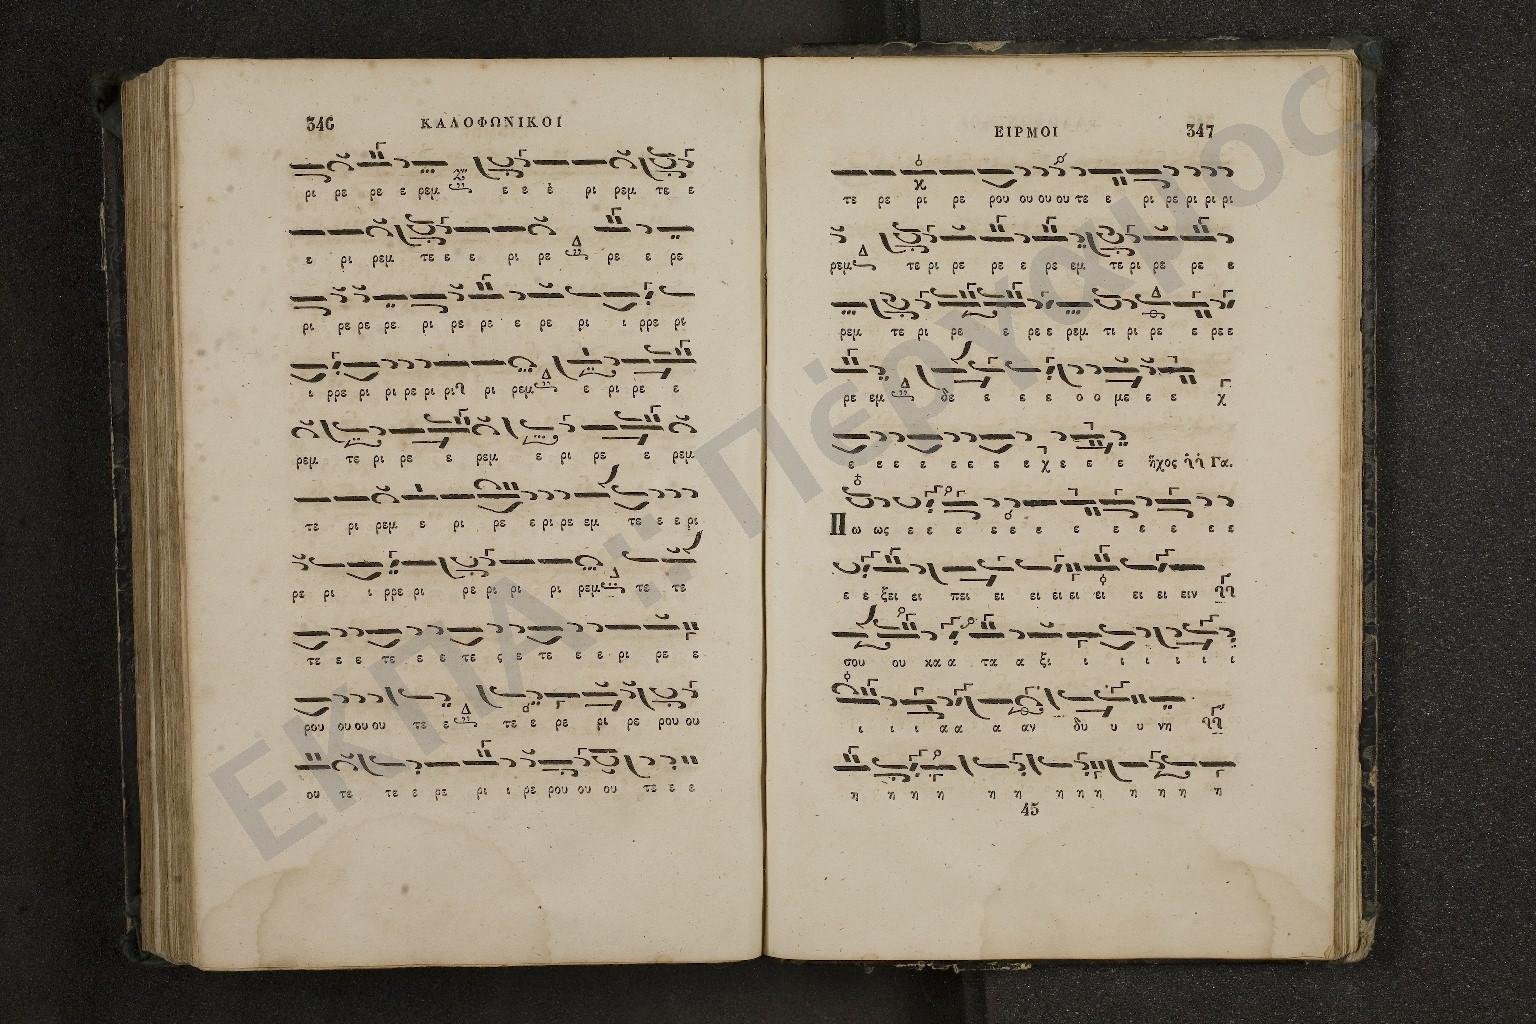 346 ΚΑΛΟΦΩΝΙΚΟΙ
ρι ρε ρε ε ρεμ ε ε ὲ ρι ρεμ τε ε
ε ρι ρεμ τε ε ε ρι ρε ρε ε ρε
ρι ρε ρε ρε ρι ρε ρε ε ρε ρι ι ρρε ρι
ι ρρε ρι ρι ρε ρι ρι ρι ρεμ ε ρι ρε ε
ρεμ τε ρι ρε ε ρεμ ε ρι ρε ε ρεμ
τε ρι ρεμ ε ρι ρε ε ρι ρε εμ τε ε ε ρι
ρε ρι ι ρρε ρι ρε ρι ρι ρι ρεμ τε τε
τε ε ε τε ε ε τε ς ε τε ε ε ρι ρε ε
ρου ου ου ου τε ε τε ε ρε ρι ρε ρου ου
ου τε τε ε ρε ρι ι ρε ρου ου ου τε ε ε
ΕΙΡΜΟΙ 347
τε ρε ρι ρε ρου ου ου ου τε ε ρι ρε ρι ρι ρι
ρεμ τε ρι ρε ρε ε ρε εμ τε ρι ρε ρε ε
ρεμ τε ρι ρε ε ρε ε ρεμ τι ρι ρε ε ρε ε
ρε εμ δε ε ε ε ο ο με ε ε χ
ε ε ε ε ε ε ε ε χ ε ε ε ἦχος Γα.
Πω ως ε ε ε ε ε ε ε ε ε ε ε
ε ε ξει ει πει ει ει ει ει ει ει ει ειν
σου ου κα α τα α ξι ι ι ι ι ι ι
ι ι ι α α α αν δυ υ υ νη
η η η η η η η η η η η η η
45
ΕΚΠΑ Πέργαμος